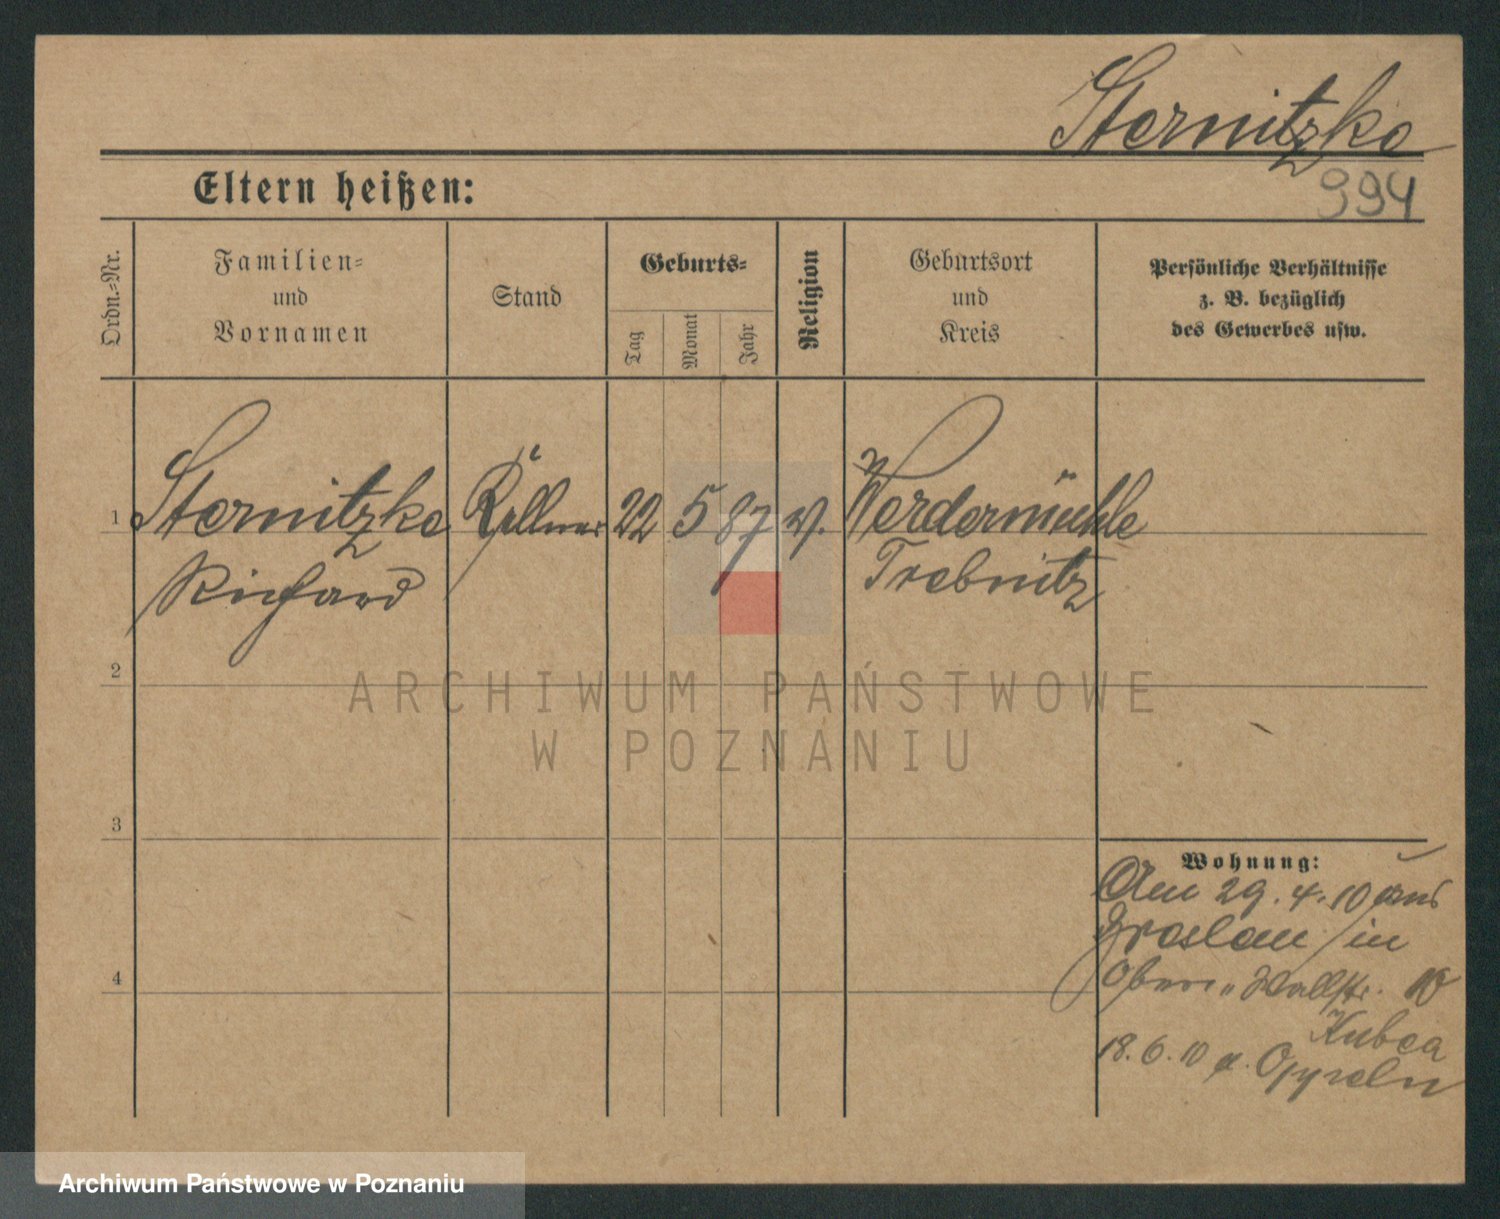 Sternitzke
994
Eltern heißen:
Ordn.=Nr.
Familien=
und
Vornamen
Stand
Geburts=
Tag
Monat
Jahr
Religion
Geburtsort
und
Kreis
Persönliche Verhältnisse
z. B. bezüglich
des Gewerbes usw.
1 Sternitzke Kellner 22 5 87 Werdermühle
Richard Trebnitz
2
ARCHIWUM PAŃSTWOWE
W POZNANIU
3
Wohnung:
Am 29. 4. 10 aus
Breslau in
Obere Wallstr. 10
Kubea
18. 6. 10 n. Oppeln
4
Archiwum Państwowe w Poznaniu